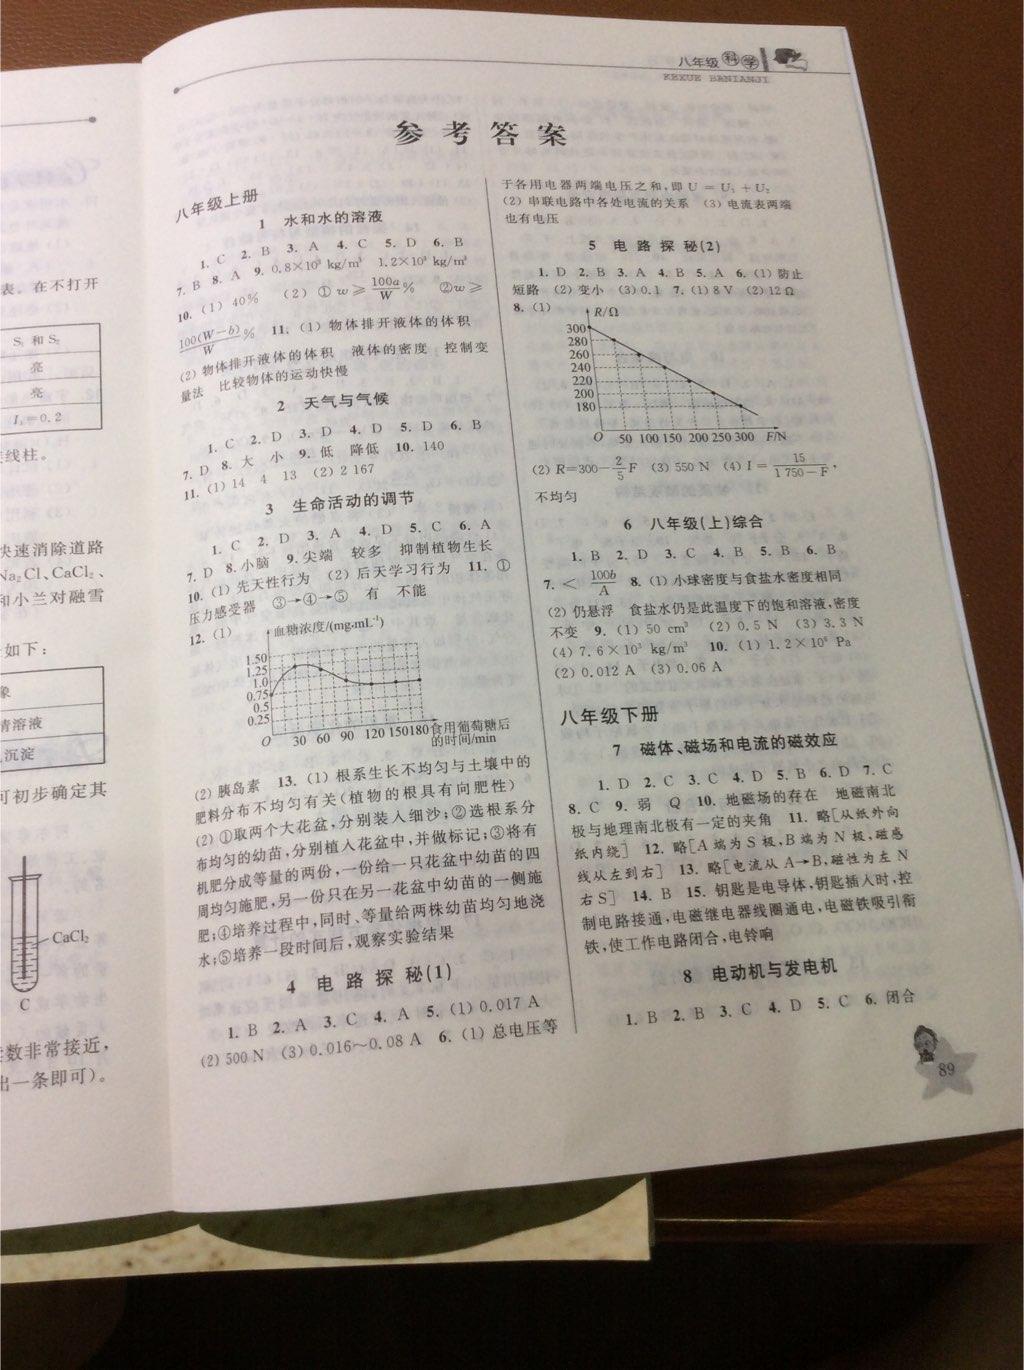 表。在不打开
S₁ 和 S₂
亮
亮
I₁=0.2
接线柱。
快速消除道路
Na₂Cl、CaCl₂、
和小兰对融雪
如下：
象
清溶液
沉淀
可初步确定其
CaCl₂
C
读数非常接近，
出一条即可）。
八年级科学
KEXUE BANIANJI
参考答案
八年级上册
1 水和水的溶液
1. C 2. B 3. A 4. C 5. D 6. B
7. B 8. A 9. 0.8×10³ kg/m³ 1.2×10³ kg/m³
10. (1) 40% (2) ① w≥100a/W% ②w≥
100(W−b)/W% 11. (1) 物体排开液体的体积
(2) 物体排开液体的体积 液体的密度 控制变
量法 比较物体的运动快慢
2 天气与气候
1. C 2. D 3. D 4. D 5. D 6. B
7. D 8. 大 小 9. 低 降低 10. 140
11. (1) 14 4 13 (2) 2 167
3 生命活动的调节
1. C 2. D 3. A 4. D 5. C 6. A
7. D 8. 小脑 9. 尖端 较多 抑制植物生长
10. (1) 先天性行为 (2) 后天学习行为 11. ①
压力感受器 ③→④→⑤ 有 不能
12. (1)
血糖浓度/(mg·mL⁻¹)
1.50
1.25
1.0
0.75
0.5
0.25
O 30 60 90 120 150 180 食用葡萄糖后
的时间/min
(2) 胰岛素 13. (1) 根系生长不均匀与土壤中的
肥料分布不均匀有关（植物的根具有向肥性）
(2) ①取两个大花盆，分别装入细沙；②选根系分
布均匀的幼苗，分别植入花盆中，并做标记；③将有
机肥分成等量的两份，一份给一只花盆中幼苗的四
周均匀施肥，另一份只在另一花盆中幼苗的一侧施
肥；④培养过程中，同时、等量给两株幼苗均匀地浇
水；⑤培养一段时间后，观察实验结果
4 电路探秘(1)
1. B 2. A 3. C 4. A 5. (1) 0.017 A
(2) 500 N (3) 0.016～0.08 A 6. (1) 总电压等
于各用电器两端电压之和，即 U = U₁ + U₂
(2) 串联电路中各处电流的关系 (3) 电流表两端
也有电压
5 电路探秘(2)
1. D 2. B 3. A 4. B 5. A 6. (1) 防止
短路 (2) 变小 (3) 0.1 7. (1) 8 V (2) 12 Ω
8. (1)
R/Ω
300
280
260
240
220
200
180
O 50 100 150 200 250 300 F/N
(2) R=300−2/5F (3) 550 N (4) I=15/(1 750−F)，
不均匀
6 八年级(上)综合
1. B 2. D 3. C 4. B 5. B 6. B
7. < 100b/A 8. (1) 小球密度与食盐水密度相同
(2) 仍悬浮 食盐水仍是此温度下的饱和溶液，密度
不变 9. (1) 50 cm³ (2) 0.5 N (3) 3.3 N
(4) 7.6×10³ kg/m³ 10. (1) 1.2×10⁶ Pa
(2) 0.012 A (3) 0.06 A
八年级下册
7 磁体、磁场和电流的磁效应
1. D 2. C 3. C 4. D 5. B 6. D 7. C
8. C 9. 弱 Q 10. 地磁场的存在 地磁南北
极与地理南北极有一定的夹角 11. 略[从纸外向
纸内绕] 12. 略[A 端为 S 极，B 端为 N 极，磁感
线从左到右] 13. 略[电流从 A→B，磁性为左 N
右 S] 14. B 15. 钥匙是电导体，钥匙插入时，控
制电路接通，电磁继电器线圈通电，电磁铁吸引衔
铁，使工作电路闭合，电铃响
8 电动机与发电机
1. B 2. B 3. C 4. D 5. C 6. 闭合
89